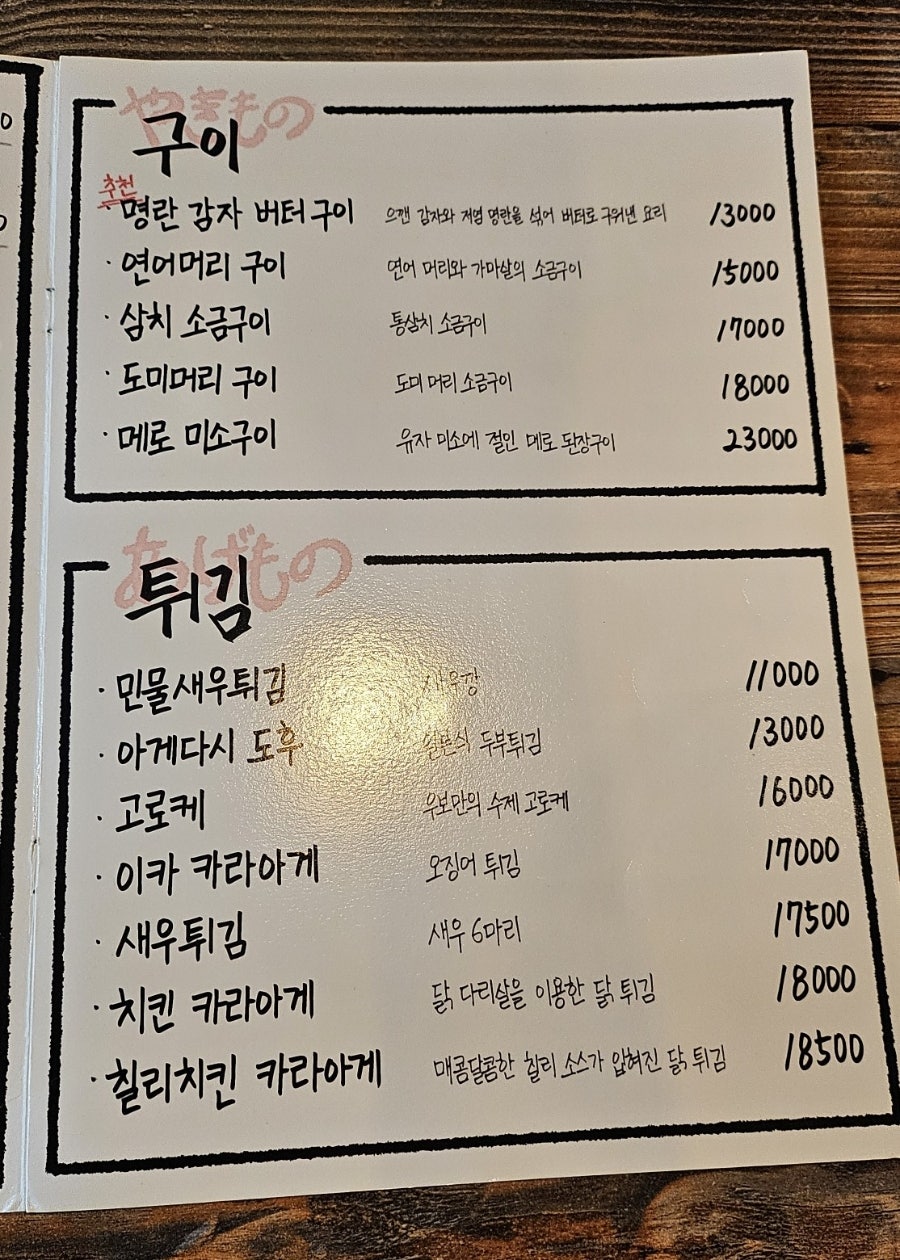 0
0
やきもの
구이
추천
· 명란 감자 버터 구이 으깬 감자와 저염 명란을 섞어 버터로 구워낸 요리 13000
· 연어머리 구이 연어 머리와 가마살의 소금구이 15000
· 삼치 소금구이 통삼치 소금구이 17000
· 도미머리 구이 도미 머리 소금구이 18000
· 메로 미소구이 유자 미소에 절인 메로 된장구이 23000
あげもの
튀김
· 민물새우튀김 새우깡 11000
· 아게다시 도후 일본식 두부튀김 13000
· 고로케 우보만의 수제 고로케 16000
· 이카 카라아게 오징어 튀김 17000
· 새우튀김 새우 6마리 17500
· 치킨 카라아게 닭 다리살을 이용한 닭 튀김 18000
· 칠리치킨 카라아게 매콤달콤한 칠리 소스가 입혀진 닭 튀김 18500